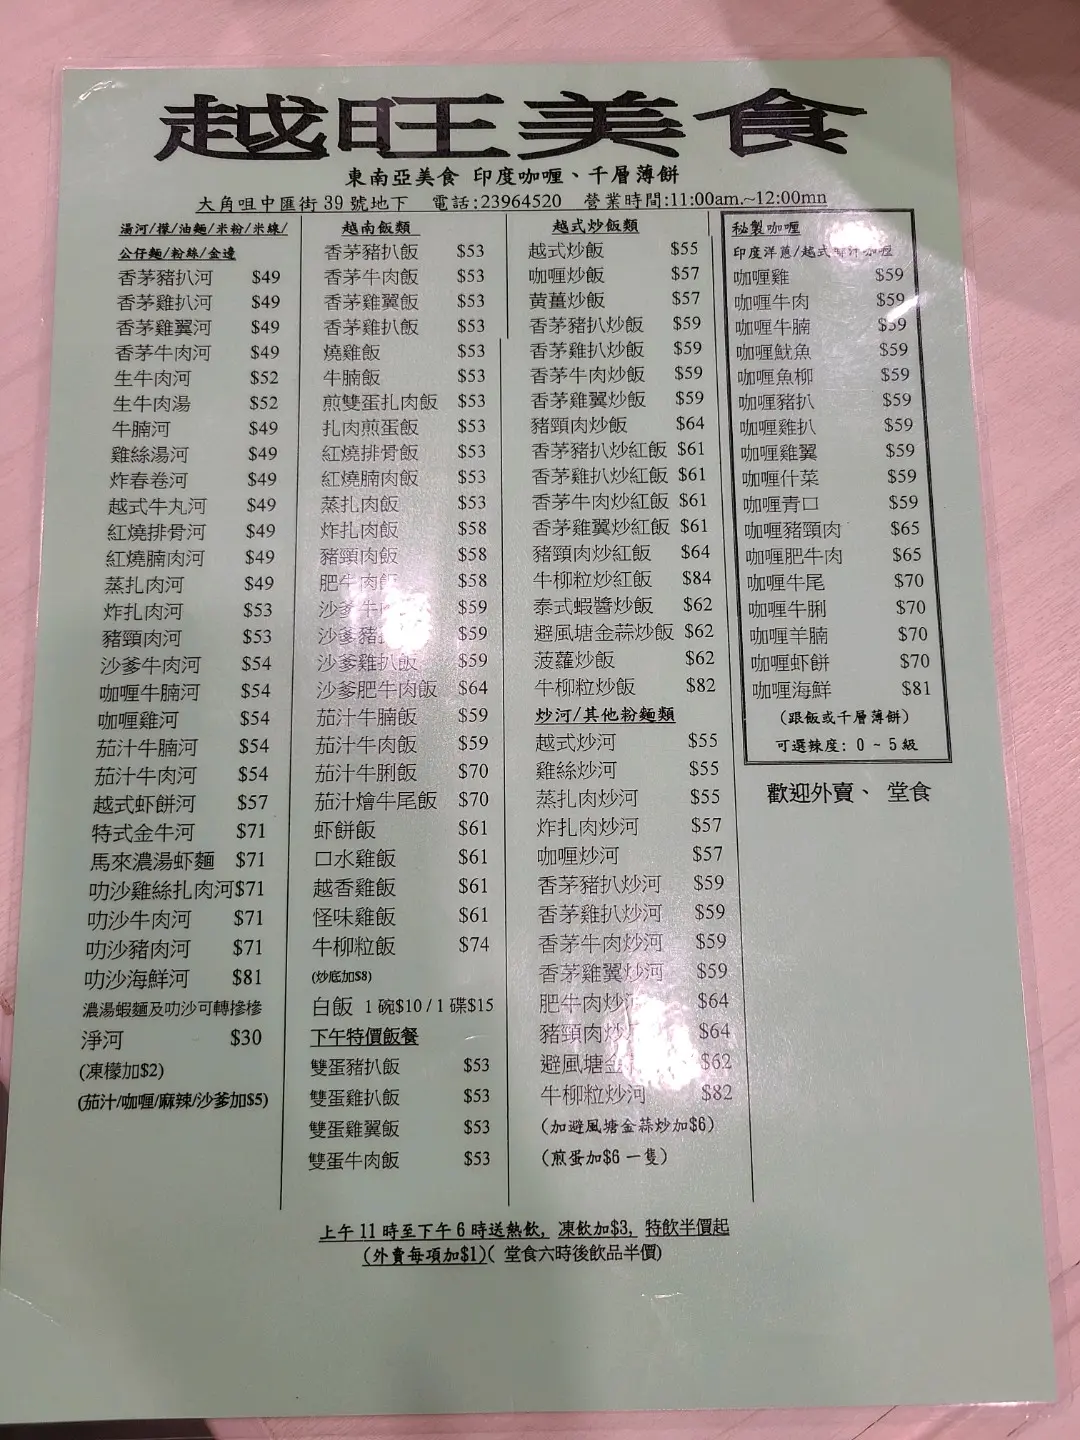 越旺美食
東南亞美食 印度咖喱、千層薄餅
大角咀中匯街 39 號地下 電話:23964520 營業時間:11:00am.~12:00mn
湯河/檬/油麵/米粉/米線/
公仔麵/粉絲/金邊
香茅豬扒河 $49
香茅雞扒河 $49
香茅雞翼河 $49
香茅牛肉河 $49
生牛肉河 $52
生牛肉湯 $52
牛腩河 $49
雞絲湯河 $49
炸春卷河 $49
越式牛丸河 $49
紅燒排骨河 $49
紅燒腩肉河 $49
蒸扎肉河 $49
炸扎肉河 $53
豬頸肉河 $53
沙爹牛肉河 $54
咖喱牛腩河 $54
咖喱雞河 $54
茄汁牛腩河 $54
茄汁牛肉河 $54
越式虾餅河 $57
特式金牛河 $71
馬來濃湯虾麵 $71
叻沙雞絲扎肉河$71
叻沙牛肉河 $71
叻沙豬肉河 $71
叻沙海鮮河 $81
濃湯蝦麵及叻沙可轉摻摻
淨河 $30
(凍檬加$2)
(茄汁/咖喱/麻辣/沙爹加$5)
越南飯類
香茅豬扒飯 $53
香茅牛肉飯 $53
香茅雞翼飯 $53
香茅雞扒飯 $53
燒雞飯 $53
牛腩飯 $53
煎雙蛋扎肉飯 $53
扎肉煎蛋飯 $53
紅燒排骨飯 $53
紅燒腩肉飯 $53
蒸扎肉飯 $53
炸扎肉飯 $58
豬頸肉飯 $58
肥牛肉飯 $58
沙爹牛 $59
沙爹豬 $59
沙爹雞扒飯 $59
沙爹肥牛肉飯 $64
茄汁牛腩飯 $59
茄汁牛肉飯 $59
茄汁牛脷飯 $70
茄汁燴牛尾飯 $70
虾餅飯 $61
口水雞飯 $61
越香雞飯 $61
怪味雞飯 $61
牛柳粒飯 $74
(炒底加$8)
白飯 1 碗$10 / 1 碟$15
下午特價飯餐
雙蛋豬扒飯 $53
雙蛋雞扒飯 $53
雙蛋雞翼飯 $53
雙蛋牛肉飯 $53
越式炒飯類
越式炒飯 $55
咖喱炒飯 $57
黄薑炒飯 $57
香茅豬扒炒飯 $59
香茅雞扒炒飯 $59
香茅牛肉炒飯 $59
香茅雞翼炒飯 $59
豬頸肉炒飯 $64
香茅豬扒炒紅飯 $61
香茅雞扒炒紅飯 $61
香茅牛肉炒紅飯 $61
香茅雞翼炒紅飯 $61
豬頸肉炒紅飯 $64
牛柳粒炒紅飯 $84
泰式蝦醬炒飯 $62
避風塘金蒜炒飯 $62
菠蘿炒飯 $62
牛柳粒炒飯 $82
炒河/其他粉麵類
越式炒河 $55
雞絲炒河 $55
蒸扎肉炒河 $55
炸扎肉炒河 $57
咖喱炒河 $57
香茅豬扒炒河 $59
香茅雞扒炒河 $59
香茅牛肉炒河 $59
香茅雞翼炒河 $59
肥牛肉炒河 $64
豬頸肉炒河 $64
避風塘金 $62
牛柳粒炒河 $82
(加避風塘金蒜炒加$6)
(煎蛋加$6 一隻)
秘製咖喱
印度洋蔥/越式椰汁咖喱
咖喱雞 $59
咖喱牛肉 $59
咖喱牛腩 $59
咖喱魷魚 $59
咖喱魚柳 $59
咖喱豬扒 $59
咖喱雞扒 $59
咖喱雞翼 $59
咖喱什菜 $59
咖喱青口 $59
咖喱豬頸肉 $65
咖喱肥牛肉 $65
咖喱牛尾 $70
咖喱牛脷 $70
咖喱羊腩 $70
咖喱虾餅 $70
咖喱海鮮 $81
(跟飯或千層薄餅)
可選辣度: 0 ~ 5 級
歡迎外賣、 堂食
上午 11 時至下午 6 時送熱飲, 凍飲加$3, 特飲半價起
(外賣每項加$1)( 堂食六時後飲品半價)